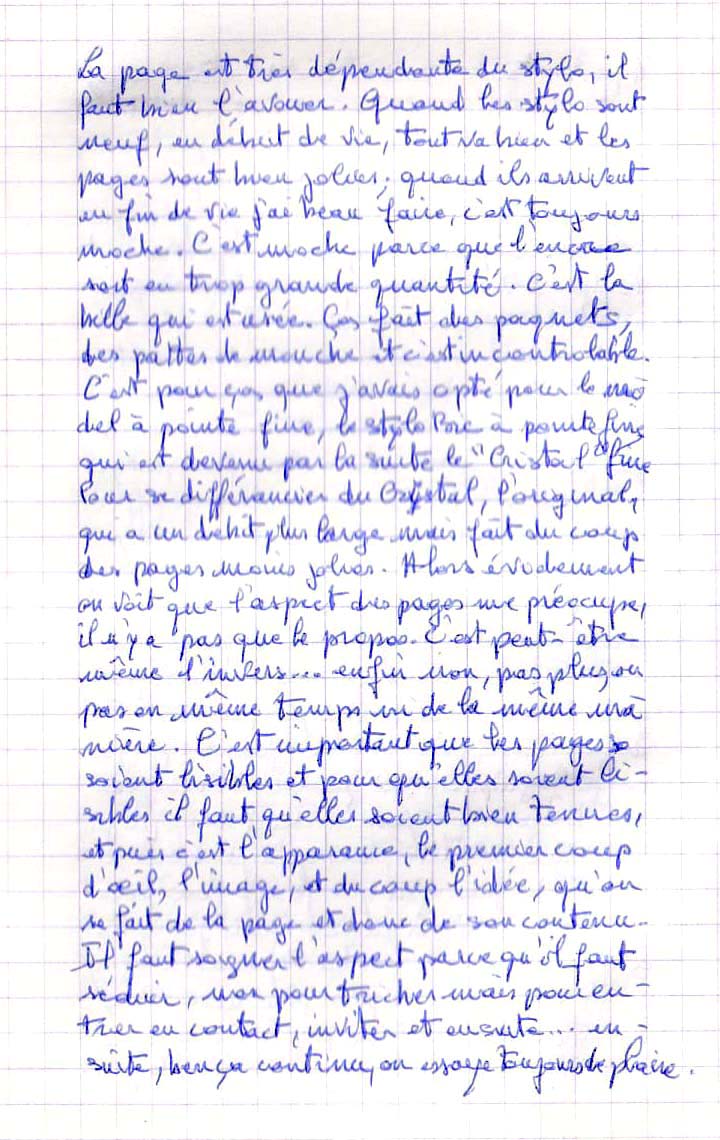 La page est très dépendante du stylo, il
faut bien l'avouer. Quand les stylo sont
neuf, en début de vie, tout va bien et les
pages sont bien jolies; quand ils arrivent
en fin de vie j'ai beau faire, c'est toujours
moche. C'est moche parce que l'encre
sort en trop grande quantité. C'est la
bille qui est usée. Ças fait des paquets,
des pattes de mouche et c'est incontrolable.
C'est pour ça, que j'avais opté pour le mo
del à pointe fine, le stylo Bic à pointe fine
qui est devenu par la suite le "Cristal" fine
Pour se différencier du Crystal, l'original,
qui a un débit plus large mais fait du coup
des pages moins jolies. Alors évidement
on voit que l'aspect des pages me préocupe,
il n'y a pas que le propos. C'est peut-être
même l'invers... enfin non, pas plus, ou
pas en même temps ni de la même ma
nière. C'est important que les pages
soient lisibles et pour qu'elles soient li-
sibles il faut qu'elles soient bien tenues,
et puis c'est l'apparance, le premier coup
d'œil, l'image, et du coup l'idée, qu'on
se fait de la page et donc de son contenu.
Il faut soigner l'aspect parce qu'il faut
séduir, non pour tricher mais pour en-
trer en contact, inviter et ensuite... en-
suite, ben ça continu, on essaye toujours de plaire.